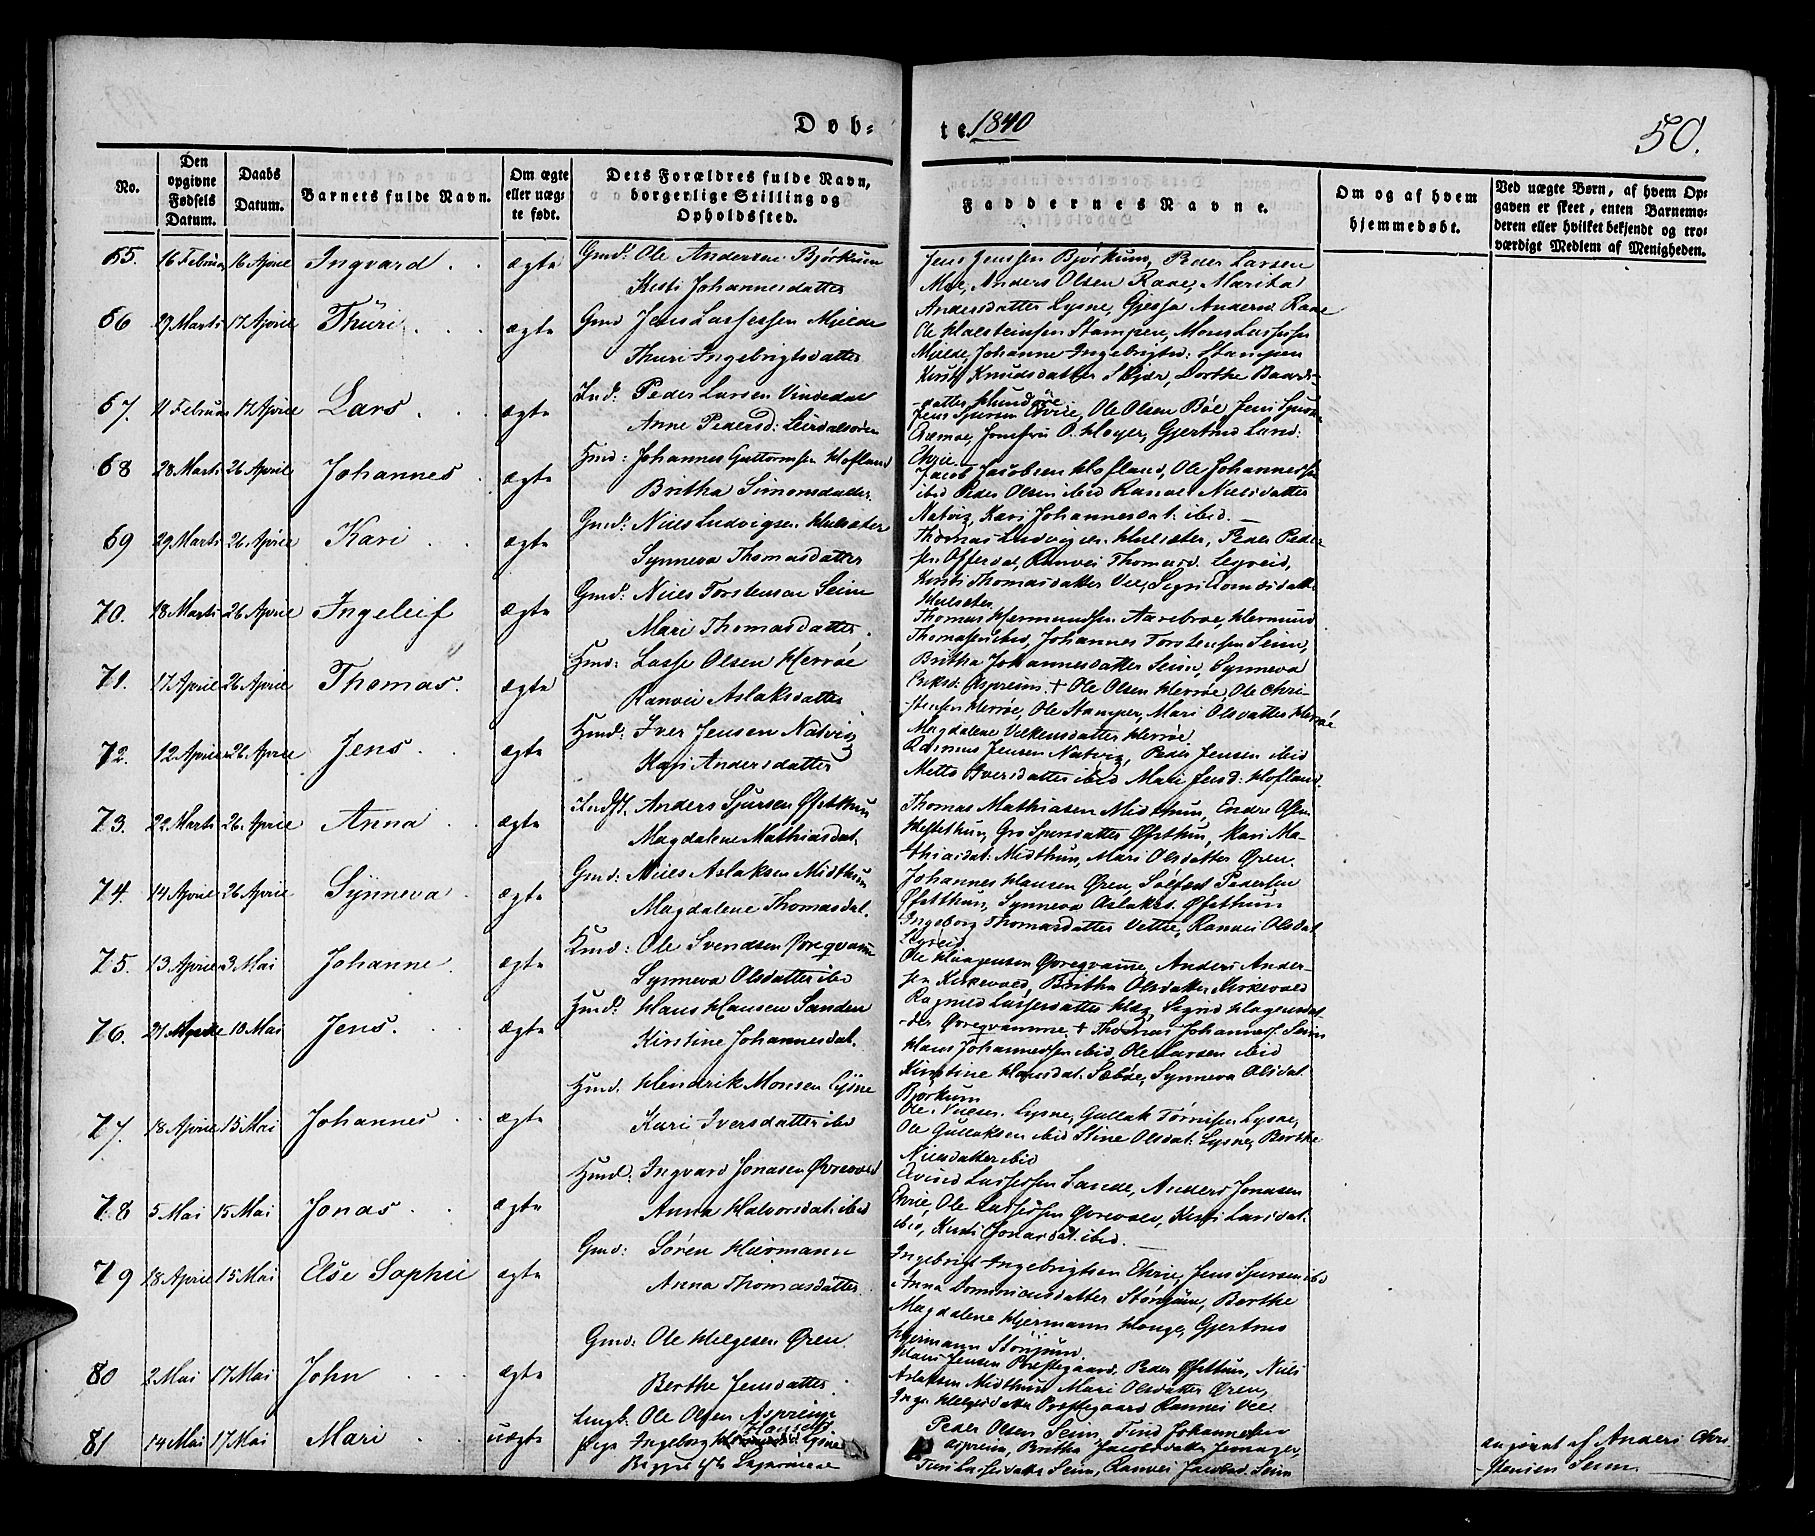 Døb-
te 1840
50.
No.
Den opgivne Fødsels Datum.
Daabs Datum.
Barnets fulde Navn.
Om ægte eller uægte født.
Dets Forældres fulde Navn, borgerlige Stilling og Opholdssted.
Faddernes Navne.
Om og af hvem hjemmedøbt.
Ved uægte Børn, af hvem Opgaven er skeet, enten Barnemoderen eller hvilket bekjendt og troværdigt Medlem af Menigheden.
65. 16 Februar 16 Aprile Ingvard ægte Gmd: Ole Andersen Bjørkum
Kirsti Johannesdatter
Jens Jensen Bjørkum, Peder Larsen
Moe, Anders Olsen Raae, Marita
Andersdatter Lysne, Gjesja Andersd Raae
66 29 Marts 17 Aprile Thuri ægte Gmd Jens Lassessen Mjelde
Thuri Ingebrigtsdatter
Ole Halsteinsen Stampen, Mons Lassessen
Mjelde, Johanne Ingebrigtsd: Stampen
Kirsti Knudsdatter Skjær, Dorthe Baards-
datter Hundøre
67. 11 Februar 17 Aprile Lars ægte Ind: Peder Larsen Vindedal
Anne Pedersd: Leirdalsøren
Jens Sjursen Ehrie, Ole Olsen Bøe, Jens Sjursen
Jomfru O. Høyer, Gjertrud Land:
Ehrie
68 28 Marts 26 Aprile Johannes ægte Hmd: Johannes Guttormsen Hofland
Britha Simonsdatter
Jacob Jacobsen Hofland, Ole Johannessen
ibid Peder Olsen ibid Ranvei Nielsdatter
Natvig, Kari Johannesdat: ibid.
69 29 Marts 26 Aprile Kari ægte Gmd: Niels Ludvigsen Hulsæter
Synneva Thomasdatter
Thomas Ludvigsen Hulsæter, Peder Peder-
sen Offerdal, Ranvei Thomasd. Lysreid,
Kirsti Thomasdatter Vee, Sigri
Hulsæter
70. 18 Marts 26 Aprile Ingeleif ægte Gmd: Niels Torstensen Seim
Mari Thomasdatter
Thomas Hermundsen Aarebroe, Hermund
Thomassen ibid, Johannes Torstensen Seim,
Britha Johannesdatter Seim, Synneva
Eriksd: Aspreim +
71. 17 Aprile 26 Aprile Thomas. ægte Hmd: Lasse Olsen Herrøe
Ranvei Aslaksdatter
Ole Olsen Herrøe, Ole Chri-
stensen Herrøe, Ole Stamper, Mari Olsdatter Herrøe
Magdalene Velkensdatter Herrøe
72. 12 Aprile 26 Aprile Jens ægte Hmd: Iver Jensen Natvig
Kari Andersdatter
Rasmus Jensen Natvig, Peder Jensen ibid
Mette Iversdatter ibid Mari Jensd: Hofland.
73. 22 Marts 26 Aprile Anna ægte Indst. Anders Sjursen Øfsthun
Magdalene Mathiasdat.
Thomas Mathiasen Midthun, Endre Ofsen
Hestethun, Gro Sjursdatter Øfsthun, Kari Ma-
thiasdat: Midthun, Mari Olsdatter Øren.
74. 14 Aprile 26 Aprile Synneva ægte Gmd: Niels Aslaksen Midthun
Magdalene Thomasdat.
Johannes Hansen Øren, Solfest Pedersen
Øfsthun, Synneva Aslaksd. Øfsthun
Ingeborg Thomasdatter Vettie, Ranvei Olsdat
Lysreid
75. 13 Aprile 3 Mai Johanne ægte Kmd: Ole Svendsen Øvreqvamme
Synneva Olsdatter ibid
Ole Haagensen Øvreqvamme, Anders Ander-
sen Kirkevold, Britha Olsdatter Kirkevold
Ragnild Lassesdatter Hæg, Sigrid Hagensdat-
der Øvreqvamme +
76. 21 10 Mai Jens. ægte Hmd: Hans Hansen Sanden
Kirstine Johannesdat.
Thomas Johanness. Seim
Hans Johannessen ibid, Ole Larsen ibid
Kirstine Hansdat: Sæbøe, Synneva Olsdat
Bjørkum
77. 18 Aprile 15 Mai Johannes ægte Hmd. Hendrik Monsen Lysne
Kari Iversdatter ibid
Ole Nielsen Lysne, Gullak Tørrisen Lysne,
Ole Gullaksen ibid Stine Olsdat. Lysne, Berthe
Nielsdatter ibid
78 5 Mai 15 Mai Jonas ægte Hmd. Ingvard Jonasen Øvrevold
Anna Halvorsdat: ibid
Eivind Lassessen Lande, Anders Jonasen
Ehrie, Ole Lassessen Øvrevold, Kirsti Larsdat:
ibid, Kirsti Jonasdat: ibid.
79 18 Aprile 15 Mai Else Sophie ægte Gmd: Søren Hiermann
Anna Thomasdatter
Ingebrigt Ingebrigtsen Ehrie, Jens Sjursen ibid
Anna Dominicusdatter Stønjum, Berthe
Magdalene Hjermann Houge, Gjertrud
Hjermann Stønjum.
80 2 Mai 17 Mai John ægte Gmd: Ole Helgesen Øren.
Berthe Jensdatter
Hans Jensen Præstegaard, Peder Øfsthun, Niels
Aslaksen Midthun Mari Olsdatter Øren,
Inga Helgesdatter Præstegaard Rannei Vee.
81 14 Mai 17 Mai Mari uægte Ungk: Ole Olsen Aspreim
Pige Ingeborg Hansdt Lysne
Peder Olsen Seim, Find Johannessen
Aspreim, Britha Jacobsdatter
Seim, Ranvei Jacobsd. Seim
angivet af Anders Chri-
stensen Seim.